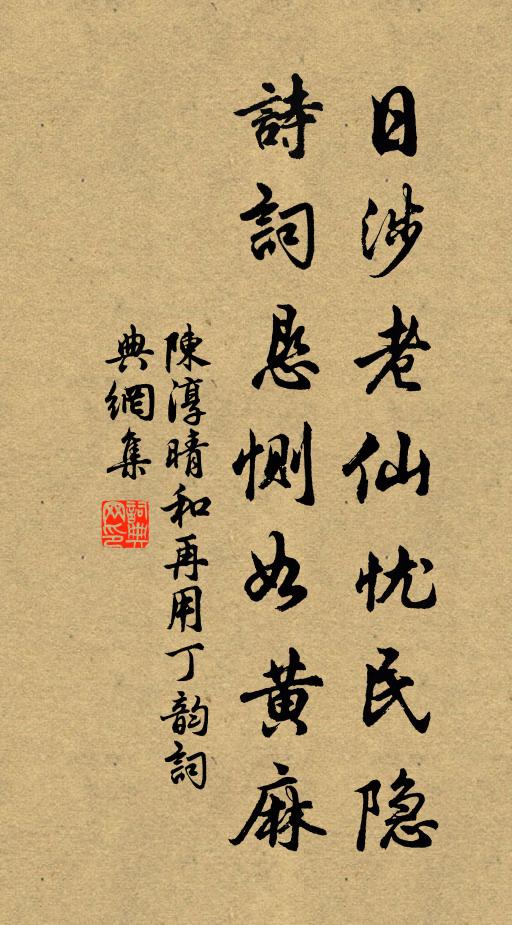 日涉老仙忧民隐
詩詞恳惻如黄麻
陳淳晴和再用丁韵詞
典網集
詞典网印